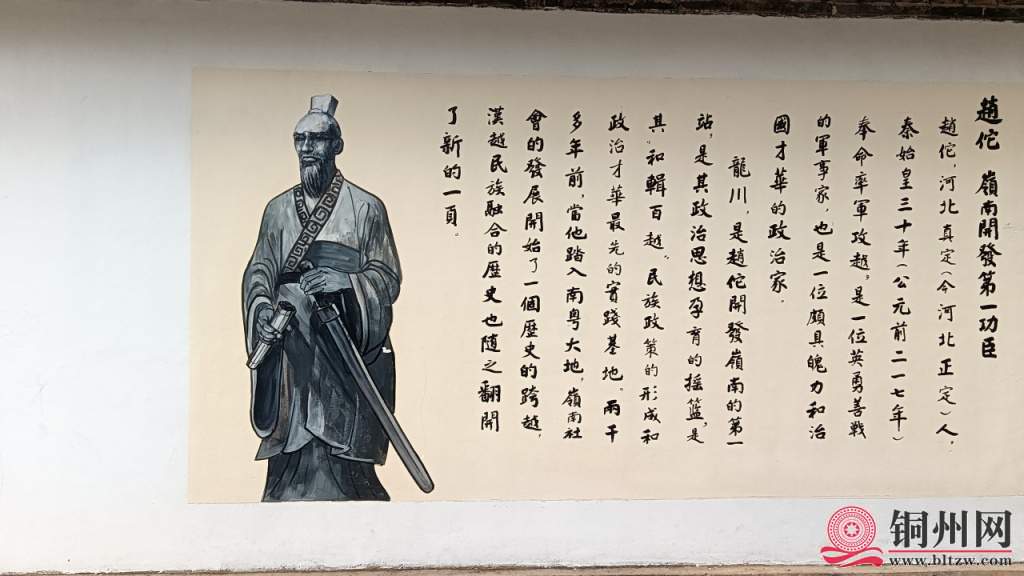 趙佗 嶺南開發第一功臣
趙佗，河北真定（今河北正定）人，
秦始皇三十年（公元前二一七年）
奉命率軍攻越，是一位英勇善戰
的軍事家，也是一位頗具魄力和治
國才華的政治家．
龍川，是趙佗開發嶺南的第一
站，是其政治思想孕育的搖籃，是
其“和輯百越”民族政策的形成和
政治才華最先的實踐基地。兩千
多年前，當他踏入南粵大地，嶺南社
會的發展開始了一個歷史的跨越，
漢越民族融合的歷史也隨之翻開
了新的一頁．
铜州网
www.bltzw.com